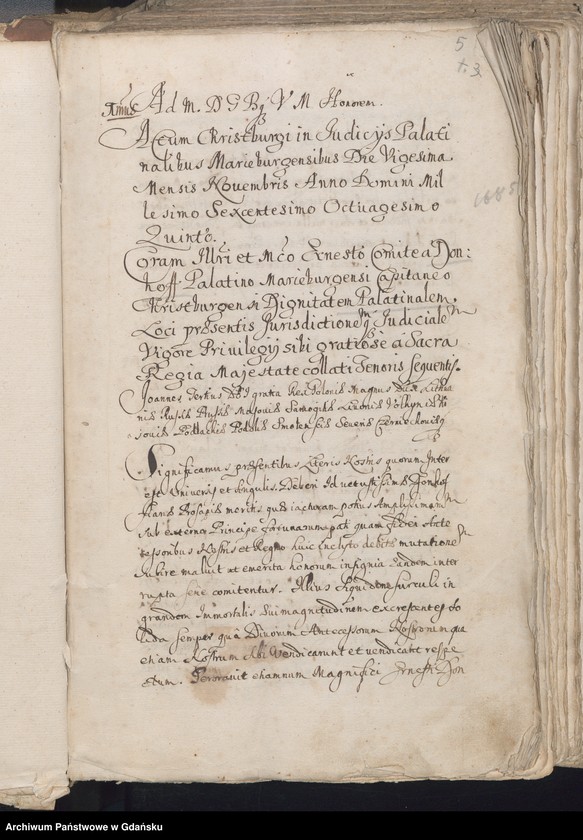 5
f. 3.
Ad M. D G Bq V M Honorem.
Actum Christburgi in Judicijs Palati
nalibus Marieburgensibus Die Vigesima
Mensis Novembris Anno Domini Mil
lesimo Sexcentesimo Octuagesimo
Quinto.
1685
Coram Illri et Mco Ernesto Comite a Don:
hoff Palatino Marieburgensi Capitaneo
Christburgensi Dignitatem Palatinalem
Loci præsentis Jurisdictionēq Judicialē
Vigore Privilegij sibi gratiose a Sacra
Regia Majestate collati Tenoris sequentis.
Joannes Tertius D G gratia Rex Poloniæ Magnus Dux Lithua
niæ Russiæ Prussiæ Masoviæ Samogitiæ Livoniæ Volhyniæ Ki
joviæ Podlachiæ Podoliæ Smolensciæ Severiæ Czerniechoviæq
Significamus præsentibus Literis Nostris quorum Inter
est Universis et Singulis. Deberi Id vetustissimæ Donhof
fianæ Prosapiæ meritis quæ jacturam potius Amplissimarū
sub externo Principe fortunarum pati quam fidei Ante
cessoribus Nostris et Regno huic inclyto debitæ mutationē
subire maluit ut emerita honorum insignia eandem inter
rupta serie comitentur. Illius siquidem surculi in
grandem Immortalis sui magnitudinem excrescentes so
lida semper qua Divorum Antecessorum Nostrorum qua
etiam Nostrum sibi vendicarunt et vendicant respe
ctum. Peroravit etiamnum Magnifici Ernesti Don
Archiwum Państwowe w Gdańsku